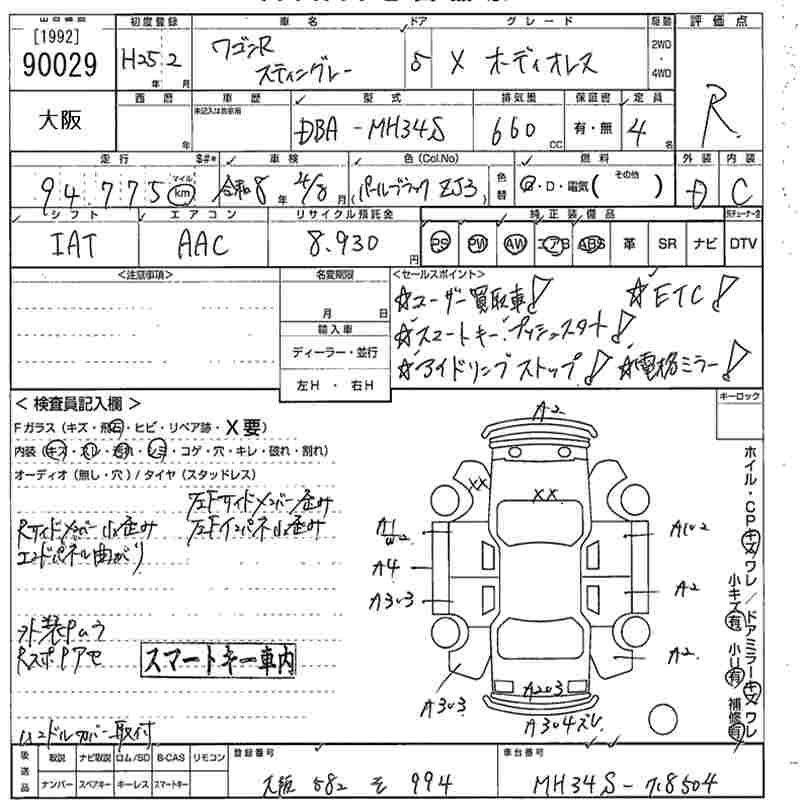 初度登録 車名 ドア グレード 駆動 評価点
[1992]
90029
H25 2
年 月
ワゴンR
スティングレー
5
X オーディオレス
2WD
・
4WD
R
大阪
西暦 車歴 型式 排気量 保証書 定員
未記入は自家用
年
DBA - MH34S
660
CC
有・無
4
名
走行 車検 色(Col.No) 燃料 外装 内装
マイル
94,775 km
令和8年 2/8月
(パールブラック ZJ3)
色替
G・D・電気( その他 )
D
C
シフト エアコン リサイクル預託金 純正装備品
IAT
AAC
8.930
円
PS PW AW エアB ABS 革 SR ナビ DTV
<注意事項> 名変期限 <セールスポイント>
月 日
輸入車
ディーラー・並行
左H ・ 右H
☆ユーザー買取車! ☆ETC!
☆スマートキー.プッシュスタート!
☆アイドリングストップ! ☆電格ミラー!
キーロック
<検査員記入欄>
Fガラス(キズ・飛石・ヒビ・リペア跡・X要)
内装(キズ・スレ・汚れ・シミ・コゲ・穴・キレ・破れ・割れ)
オーディオ(無し・穴)/タイヤ(スタッドレス)
左Fサイドメンバー歪み
Rサイドメンバー 歪み 左Fインパネル歪み
エンドパネル曲がり
スマートキー車内
ハンドルカバー取付
A2
XX
XX
A1
A4
A3
A2
A2
A3
A2
A3
ホイル・CPキズワレ/ドアミラーキズワレ
小キズ有 小U有 補修有
後送品
取説 ナビ取説 ロム/SD B-CAS リモコン
ナンバー スペアキー キーレス スマートキー
登録番号
大阪 582 そ 994
車台番号
MH34S-718504